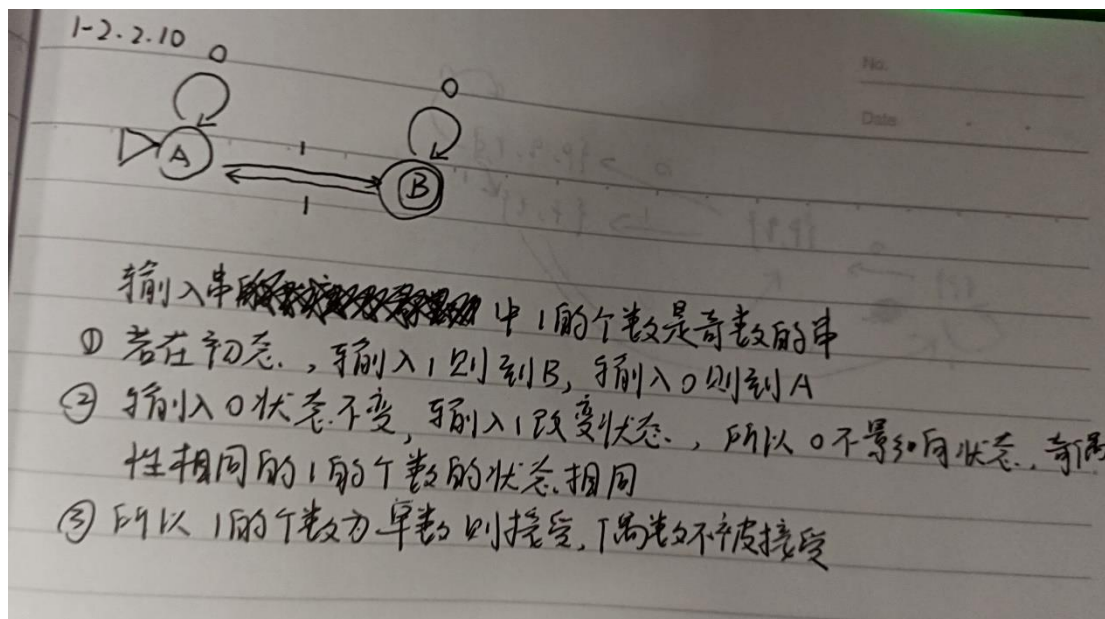 1-2.2.10
0
0
A
1
B
1
No.
Date
输入串 中1的个数是奇数的串
① 若在初态,输入1则到B,输入0则到A
② 输入0状态不变,输入1改变状态,所以0不影响状态,奇偶
性相同的1的个数的状态相同
③ 所以1的个数为单数则接受,偶数不被接受